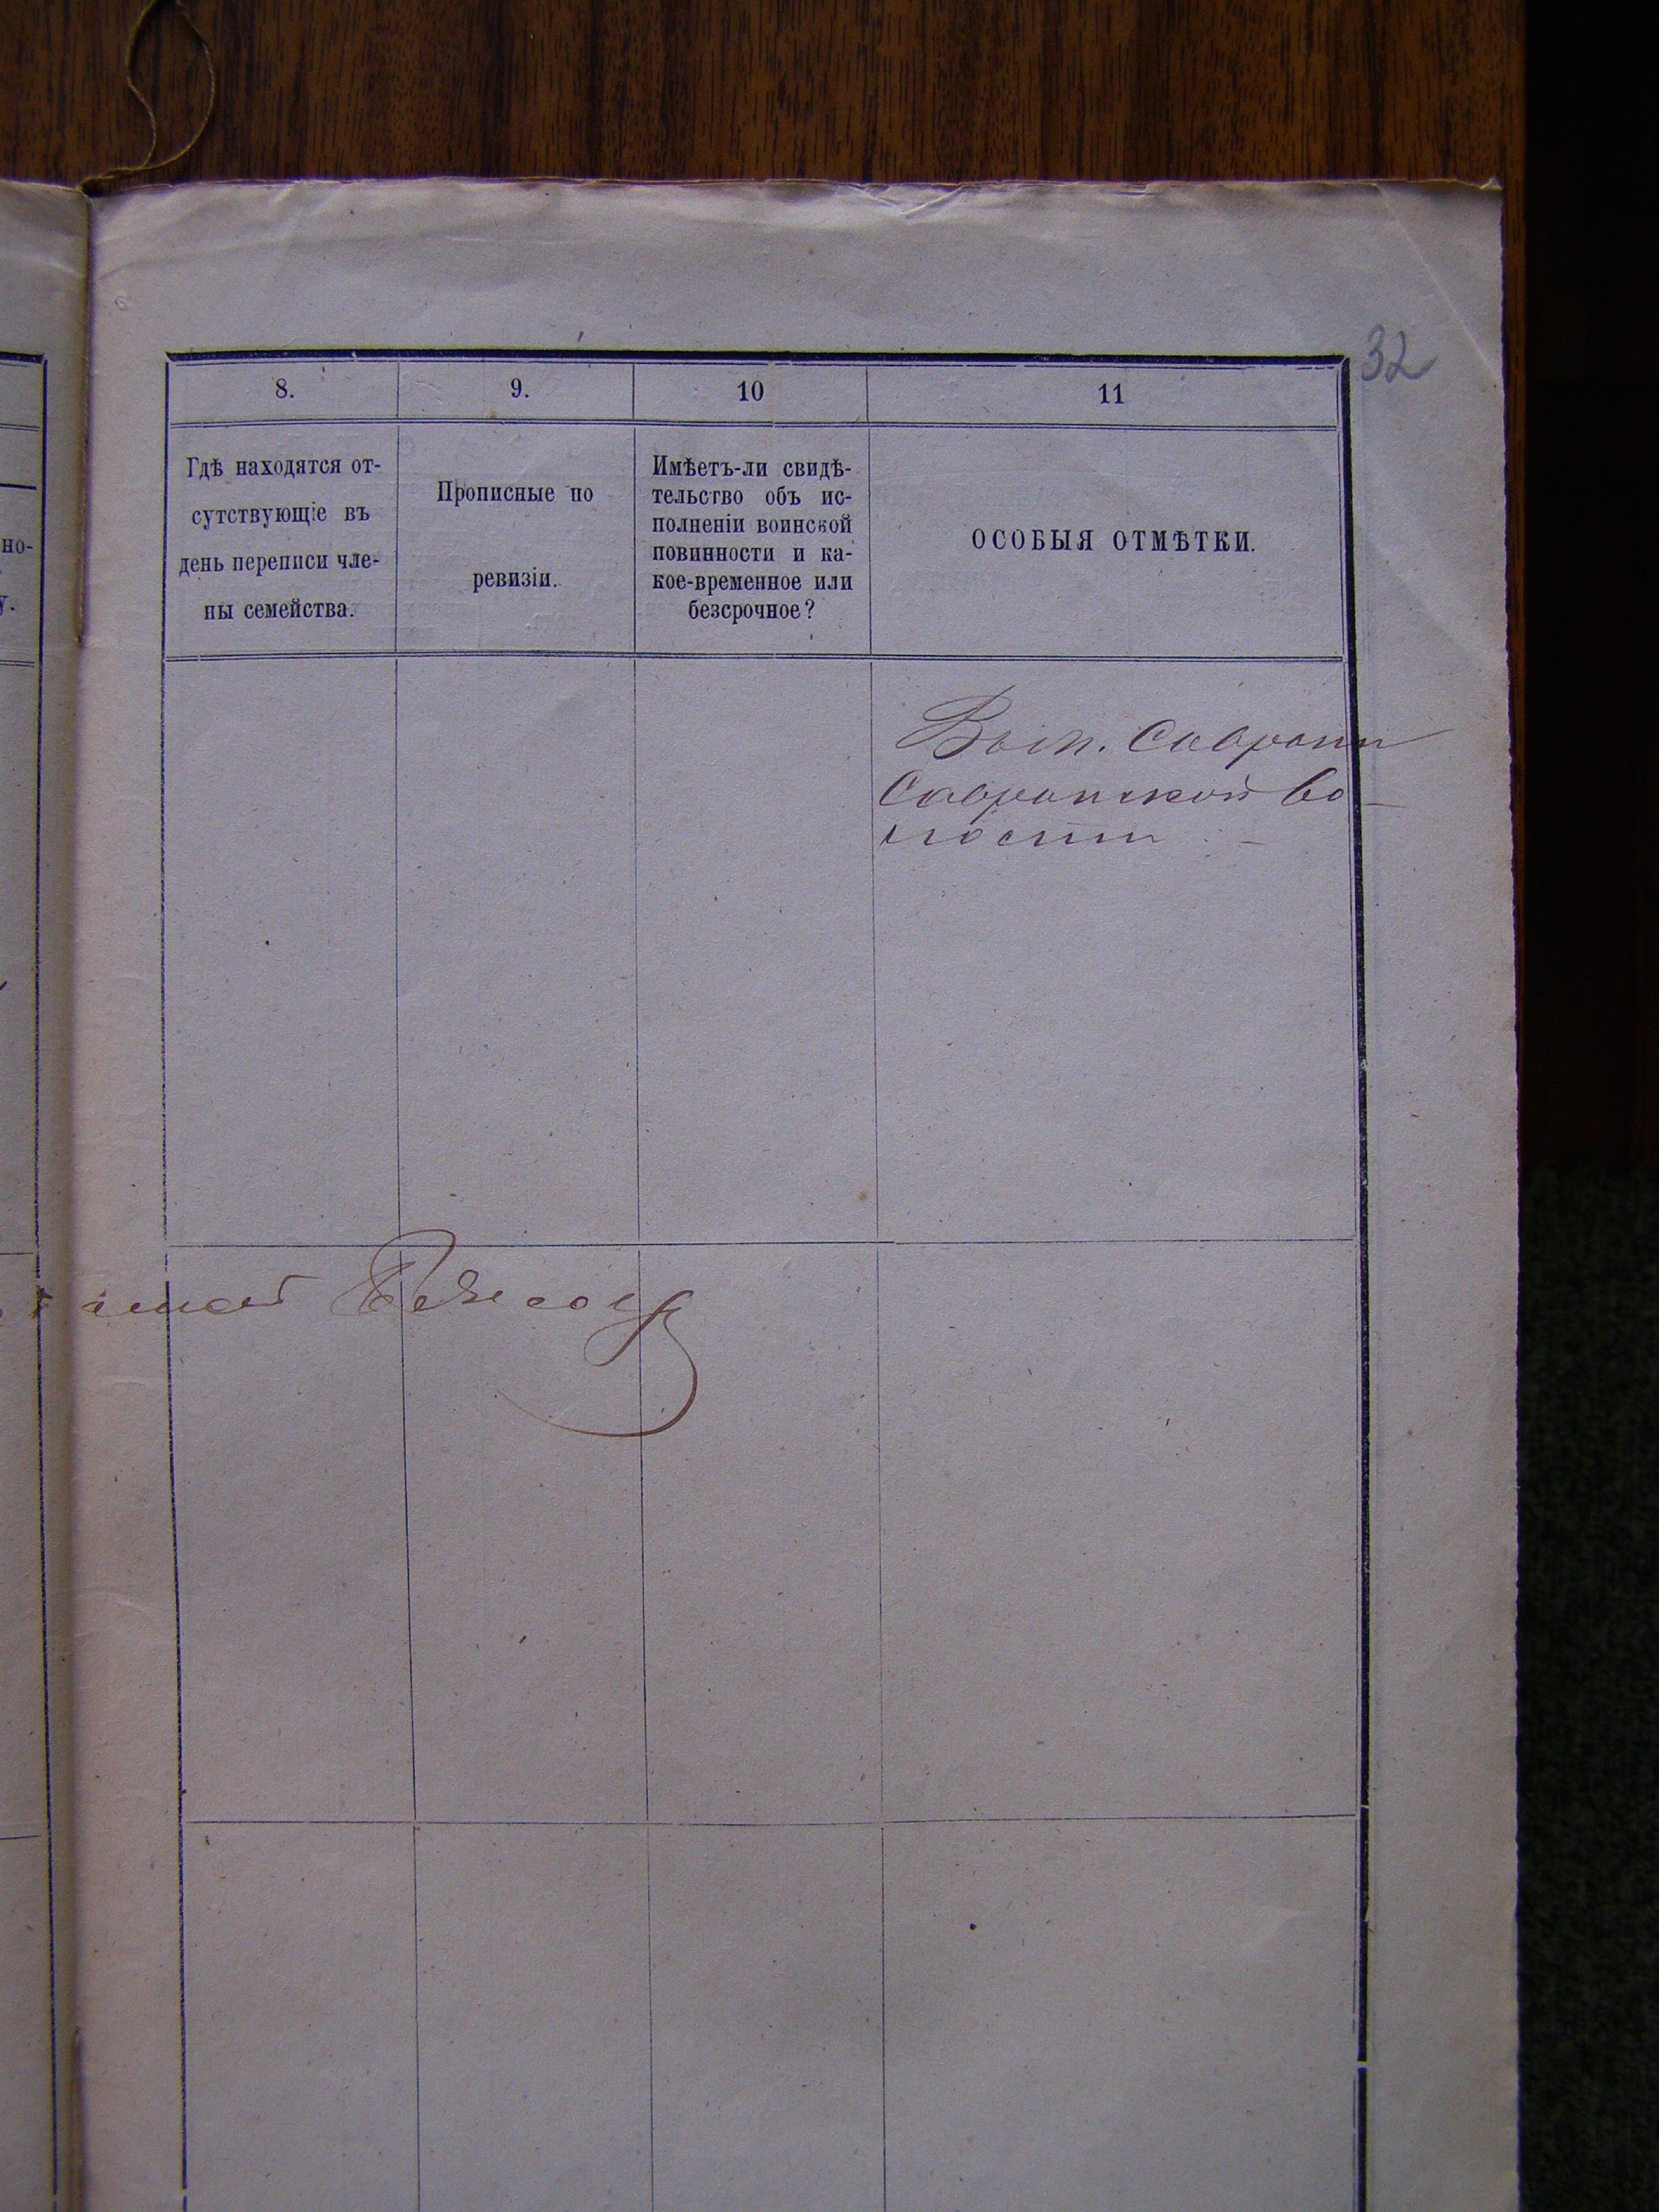 32
8.
9.
10
11
но-
у.
Гдѣ находятся от-
сутствующіе въ
день переписи чле-
ны семейства.
Прописные по
ревизіи.
Имѣетъ-ли свидѣ-
тельство объ ис-
полненіи воинской
повинности и ка-
кое-временное или
безсрочное?
ОСОБЫЯ ОТМѢТКИ.
Саврани
Савранской во-
лости. -